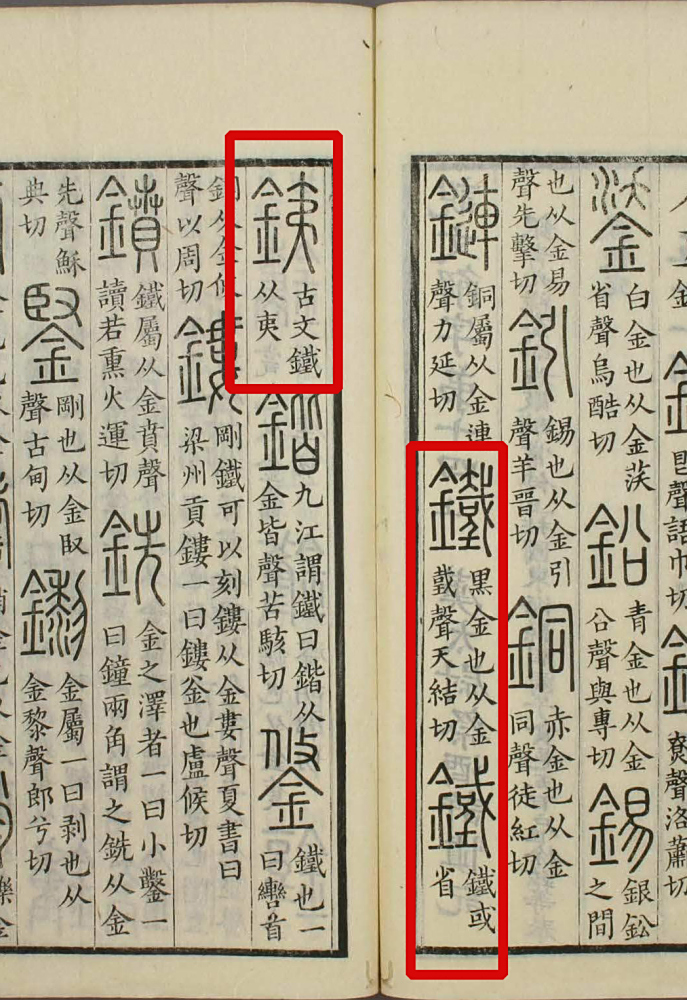 𥃩聲語巾切
尞聲洛蕭切
鋈
白金也从金䒾
省聲烏酷切
鉛
青金也从金
㕣聲與專切
錫
銀鈆
之間
也从金易
聲先擊切
鈏
錫也从金引
聲羊晉切
銅
赤金也从金
同聲徒紅切
鏈
銅屬从金連
聲力延切
鐵
黑金也从金
𢧜聲天結切
䥫
鐵或
省
銕
古文鐵
从夷
鍇
九江謂鐵曰鍇从
金皆聲苦駭切
鋚
鐵也一
曰轡首
銅从金攸
聲以周切
鏤
剛鐵可以刻鏤从金婁聲夏書曰
梁州貢鏤一曰鏤釜也盧候切
鐼
鐵屬从金賁聲
讀若熏火運切
銑
金之澤者一曰小鑿一
曰鐘兩角謂之銑从金
先聲穌
典切
鋻
剛也从金臤
聲古甸切
鑗
金屬一曰剥也从
金黎聲郎兮切